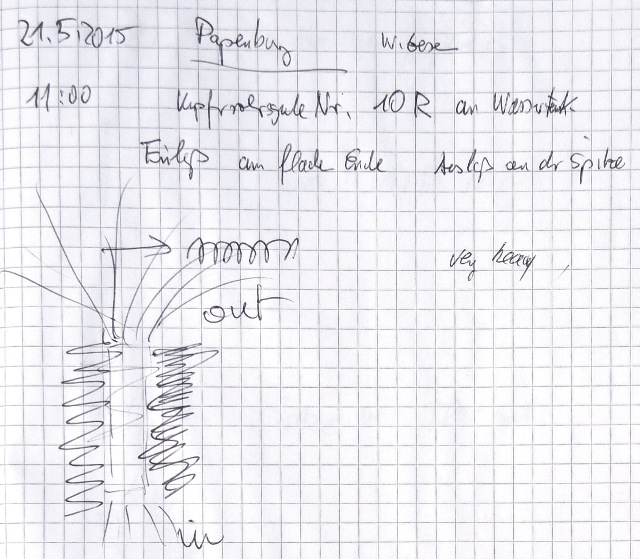 21.5.2015 Papenburg Wiese
11:00 Kupferrohrspule Nr. 10R an Wassertank
Einlaß am flache Ende Auslaß an der Spitze
very heavy
out
in